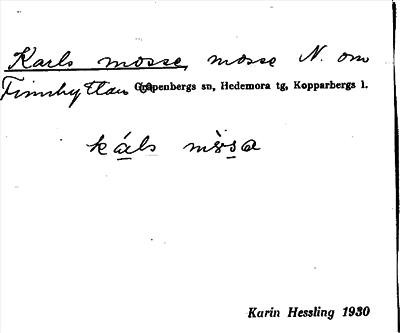 Karls mosse, mosse N. om
Finnhyttan Garpenbergs sn, Hedemora tg, Kopparbergs l.
káls mòsa
Karin Hessling 1930